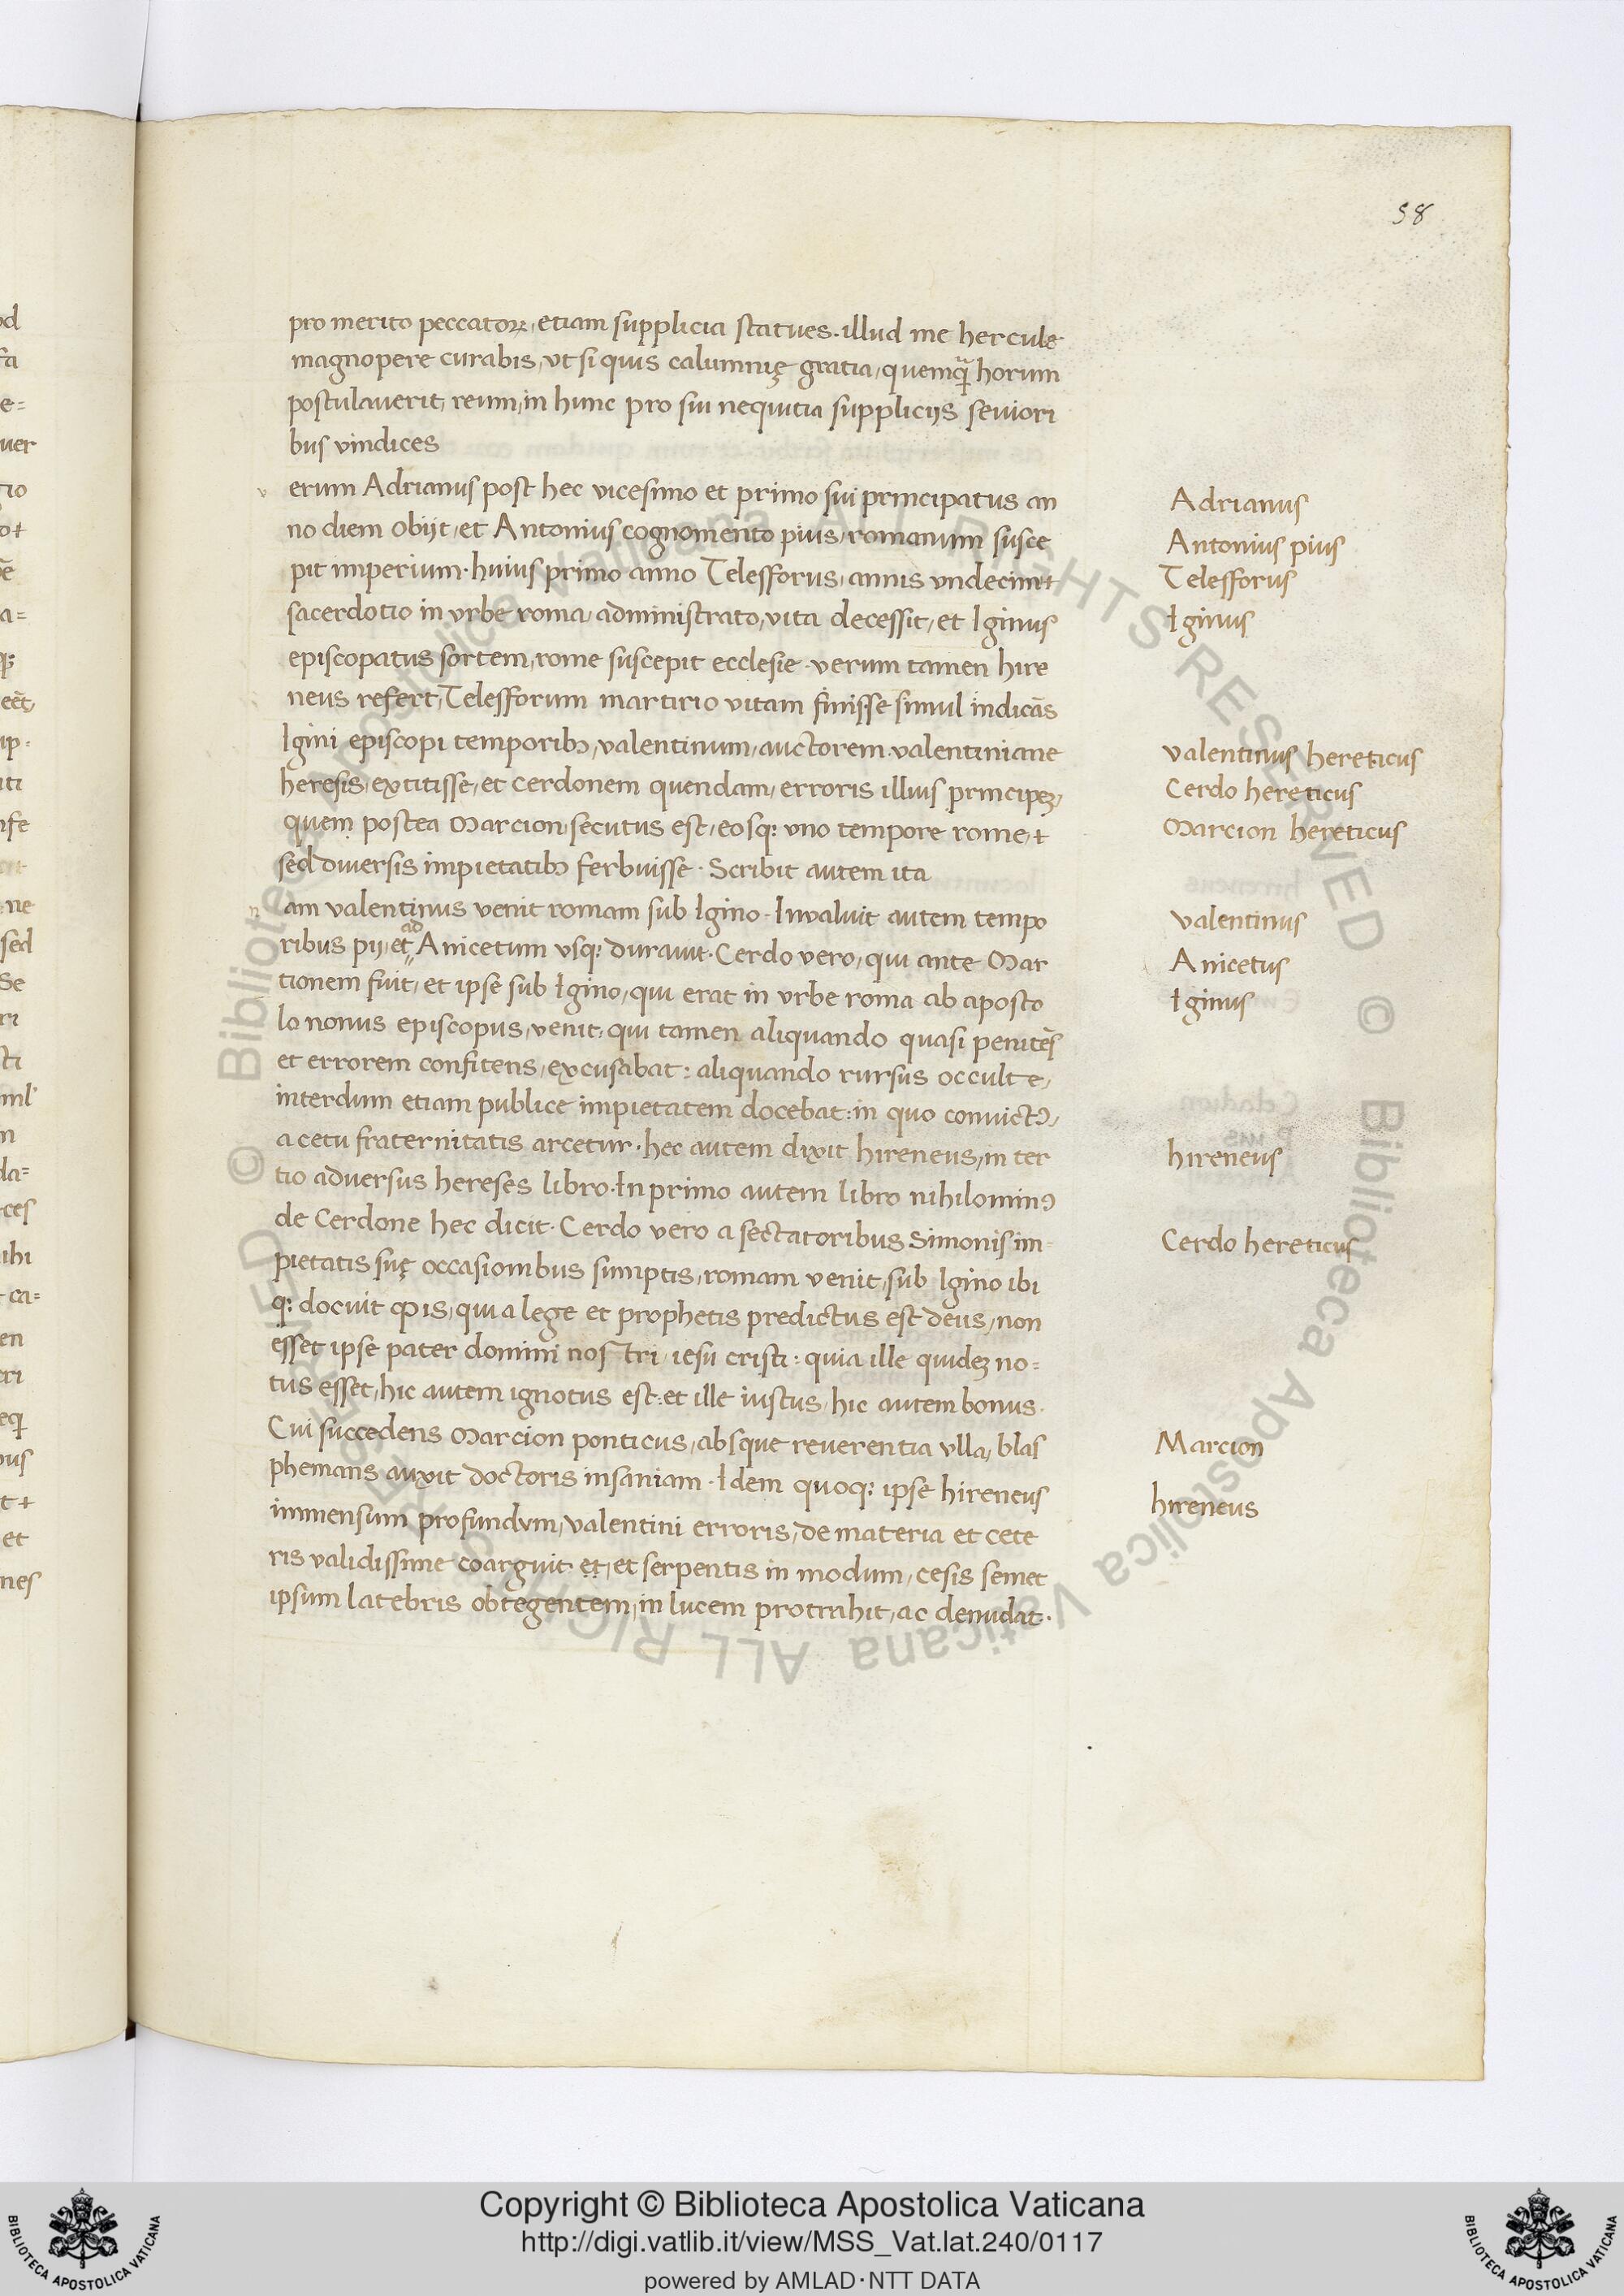 58
pro merito peccatoꝝ, etiam supplicia statues. illud me hercule
magnopere curabis, ut si quis calumnię gratia, quemq̃ horum
postulaverit, reum, in hunc pro sui nequitia suppliciis sevuori
bus vindices
v erum Adrianus post hec vicesimo et primo sui principatus an
no diem obijt, et Antonius cognomento pius, romanum susce
pit imperium. huius primo anno Telesforus, annis undecim
sacerdotio in urbe roma, administrato, vita decessit, et Iginus
episcopatus sortem, rome suscepit ecclesie. verum tamen hire
neus refert, Telesforum martirio vitam finisse simul indicãs
Igini episcopi temporibꝰ, valentinum, auctorem valentiniane
heresis, extitisse, et cerdonem quendam, erroris illius principeꝫ,
quem postea Marcion, secutus est, eosqꝫ uno tempore rome,
sed diversis impietatibꝰ ferbuisse. Scribit autem ita
n am valentinus venit romam sub Igino. Invaluit autem tempo
ribus pij, et ad Anicetum usqꝫ duravit. Cerdo vero, qui ante Mar
tionem fuit, et ipse sub Igino, qui erat in urbe roma ab aposto
lo nonus episcopus, venit, qui tamen aliquando quasi penitẽs
et errorem confitens, excusabat: aliquando rursus occulte,
interdum etiam publice impietatem docebat: in quo convictꝰ,
a cetu fraternitatis arcetur. hec autem dixit hireneus, in ter
tio adversus hereses libro. In primo autem libro nihilominꝰ
de Cerdone hec dicit. Cerdo vero a sectatoribus Simonis im
pietatis suę occasionibus sumptis, romam venit, sub Igino ibi
qꝫ docuit ꝙ is, qui a lege et prophetis predictus est deus, non
esset ipse pater domini nostri iesu cristi: quia ille quideꝫ no=
tus esset, hic autem ignotus est: et ille iustus, hic autem bonus.
Cui succedens Marcion ponticus, absque reverentia ulla, blas
phemans auxit doctoris insaniam. Idem quoqꝫ ipse hireneus
immensum profundum, valentini erroris, de materia et cete
ris validissime coarguit et, et serpentis in modum, cesis semet
ipsum latebris obtegentem, in lucem protrahit, ac denudat.
Adrianus
Antonius pius
Telesforus
Iginus
valentinus hereticus
Cerdo hereticus
Marcion hereticus
valentinus
Anicetus
Iginus
hireneus
Cerdo hereticus
Marcion
hireneus
© Biblioteca Apostolica Vaticana ALL RIGHTS RESERVED
© Biblioteca Apostolica Vaticana ALL RIGHTS RESERVED
BIBLIOTECA APOSTOLICA VATICANA
Copyright © Biblioteca Apostolica Vaticana
http://digi.vatlib.it/view/MSS_Vat.lat.240/0117
powered by AMLAD·NTT DATA
BIBLIOTECA APOSTOLICA VATICANA